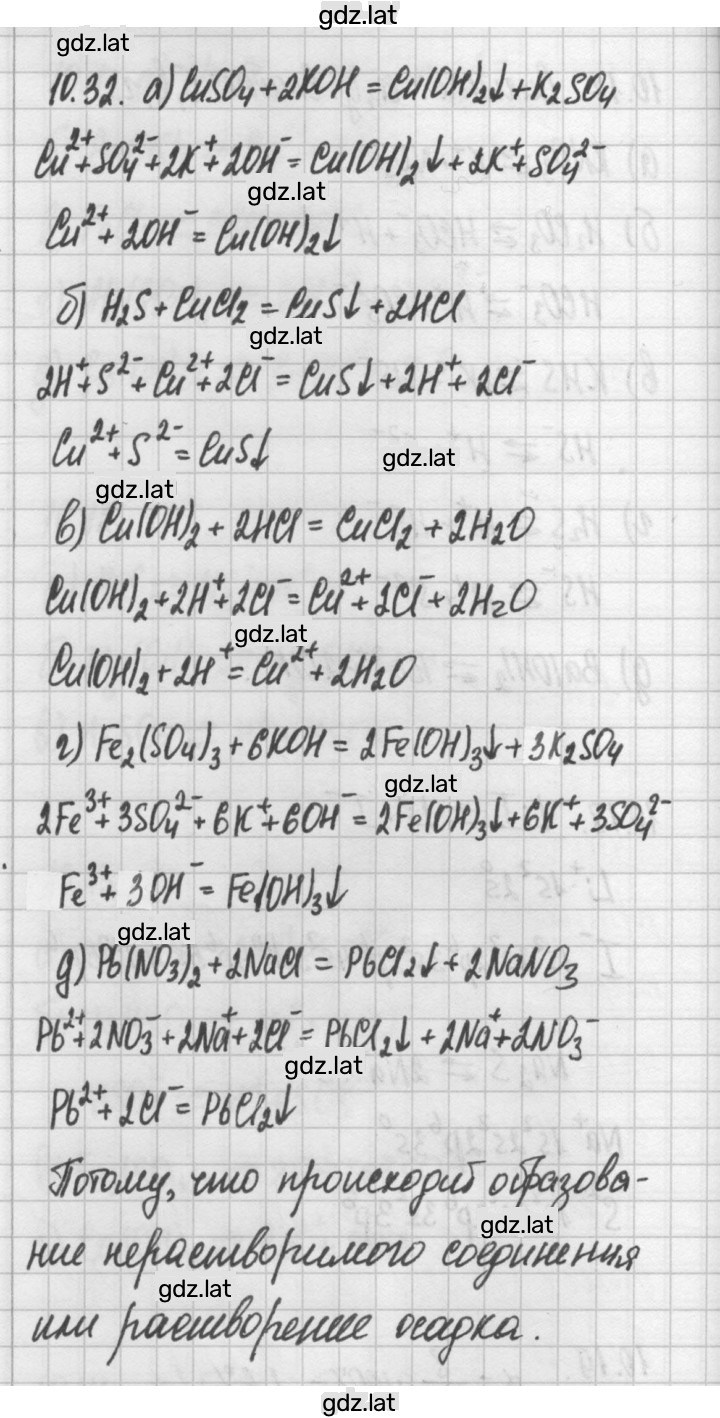 gdz.lat
gdz.lat
10.32. а) CuSO₄ + 2KOH = Cu(OH)₂↓ + K₂SO₄
Cu²⁺ + SO₄²⁻ + 2K⁺ + 2OH⁻ = Cu(OH)₂↓ + 2K⁺ + SO₄²⁻
gdz.lat
Cu²⁺ + 2OH⁻ = Cu(OH)₂↓
б) H₂S + CuCl₂ = CuS↓ + 2HCl
gdz.lat
2H⁺ + S²⁻ + Cu²⁺ + 2Cl⁻ = CuS↓ + 2H⁺ + 2Cl⁻
Cu²⁺ + S²⁻ = CuS↓
gdz.lat
gdz.lat
в) Cu(OH)₂ + 2HCl = CuCl₂ + 2H₂O
Cu(OH)₂ + 2H⁺ + 2Cl⁻ = Cu²⁺ + 2Cl⁻ + 2H₂O
gdz.lat
Cu(OH)₂ + 2H⁺ = Cu²⁺ + 2H₂O
г) Fe₂(SO₄)₃ + 6KOH = 2Fe(OH)₃↓ + 3K₂SO₄
gdz.lat
2Fe³⁺ + 3SO₄²⁻ + 6K⁺ + 6OH⁻ = 2Fe(OH)₃↓ + 6K⁺ + 3SO₄²⁻
Fe³⁺ + 3OH⁻ = Fe(OH)₃↓
gdz.lat
д) Pb(NO₃)₂ + 2NaCl = PbCl₂↓ + 2NaNO₃
Pb²⁺ + 2NO₃⁻ + 2Na⁺ + 2Cl⁻ = PbCl₂↓ + 2Na⁺ + 2NO₃⁻
gdz.lat
Pb²⁺ + 2Cl⁻ = PbCl₂↓
Потому, что происходит образова-
gdz.lat
ние нерастворимого соединения
gdz.lat
или растворение осадка.
gdz.lat